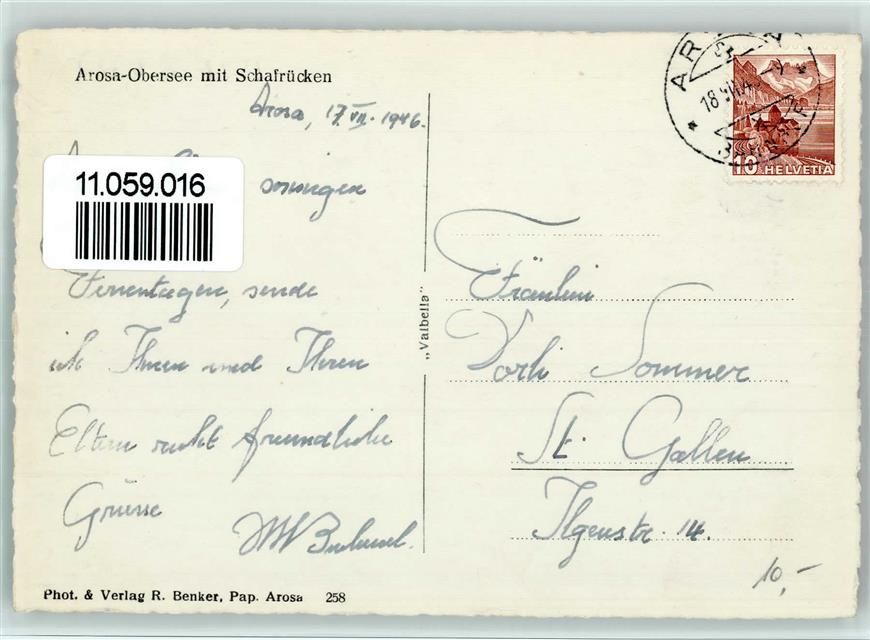 Arosa-Obersee mit Schafrücken
Arosa, 17. VII. 1946.
11.059.016
sonnigen
Ferientagen, sende
ich Ihnen und Ihren
Eltern recht freundliche
Grüsse
"Valbella"
Fräulein
Dorli Sommer
St. Gallen
Ilgenstr. 14.
AROSA
18.VII.4
10 HELVETIA
10,-
Phot. & Verlag R. Benker, Pap. Arosa 258